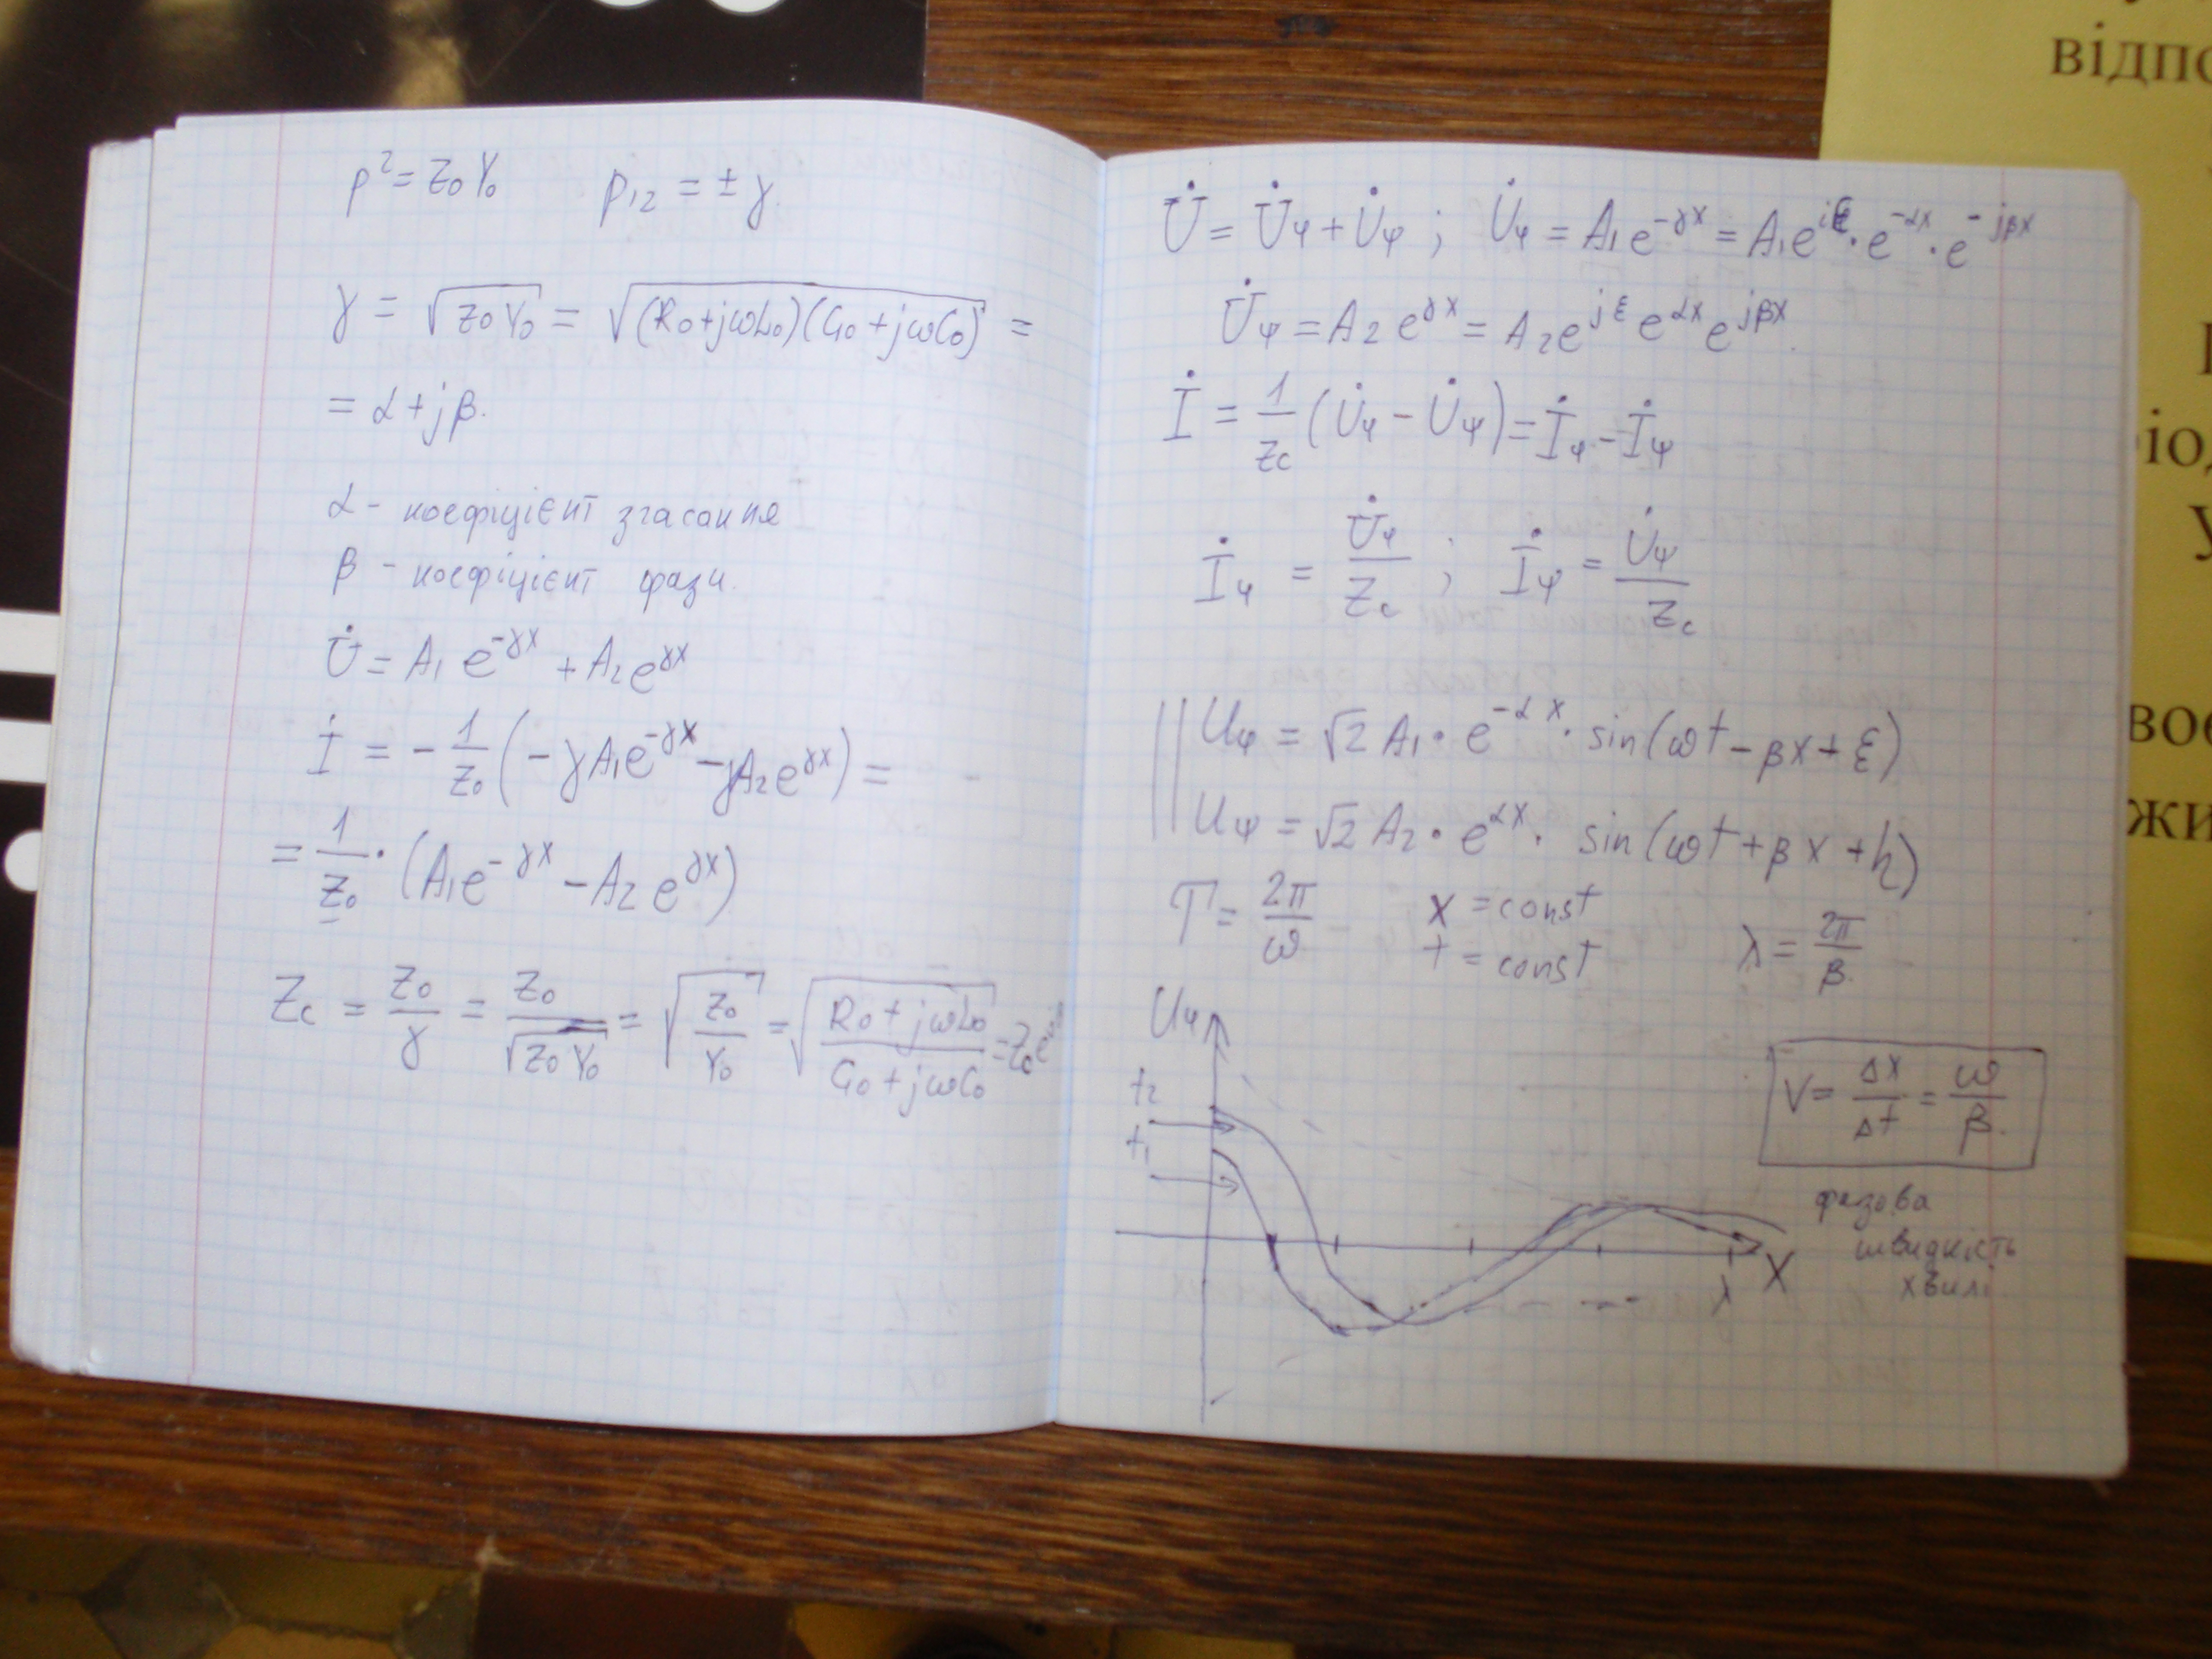 p² = Z₀Y₀ p₁₂ = ± γ.
γ = √(Z₀Y₀) = √((R₀+jωL₀)(G₀+jωC₀)) =
= α + jβ.
α - коефіцієнт згасання
β - коефіцієнт фази.
U̇ = A₁ e^(-γx) + A₂ e^(γx)
İ = - 1/Z₀ (-γA₁e^(-γx) - γA₂e^(γx)) =
= 1/Z₀ · (A₁e^(-γx) - A₂e^(γx))
Zc = Z₀/γ = Z₀/√(Z₀Y₀) = √(Z₀/Y₀) = √((R₀+jωL₀)/(G₀+jωC₀))
U̇ = U̇φ + U̇ψ ; U̇φ = A₁e^(-γx) = A₁e^(jε) · e^(-αx) · e^(-jβx)
U̇ψ = A₂ e^(γx) = A₂e^(jε) e^(αx) e^(jβx).
İ = 1/Zc (U̇φ - U̇ψ) = İφ - İψ
İφ = U̇φ/Zc ; İψ = U̇ψ/Zc
Uφ = √2 A₁ · e^(-αx) · sin(ωt - βx + ε)
Uψ = √2 A₂ · e^(αx) · sin(ωt + βx + h)
T = 2π/ω x = const λ = 2π/β.
t = const
Uφ
t₂
t₁
V = Δx/Δt = ω/β.
фазова
швидкість
хвилі
λ X
відпо
іод
У
воє
жи